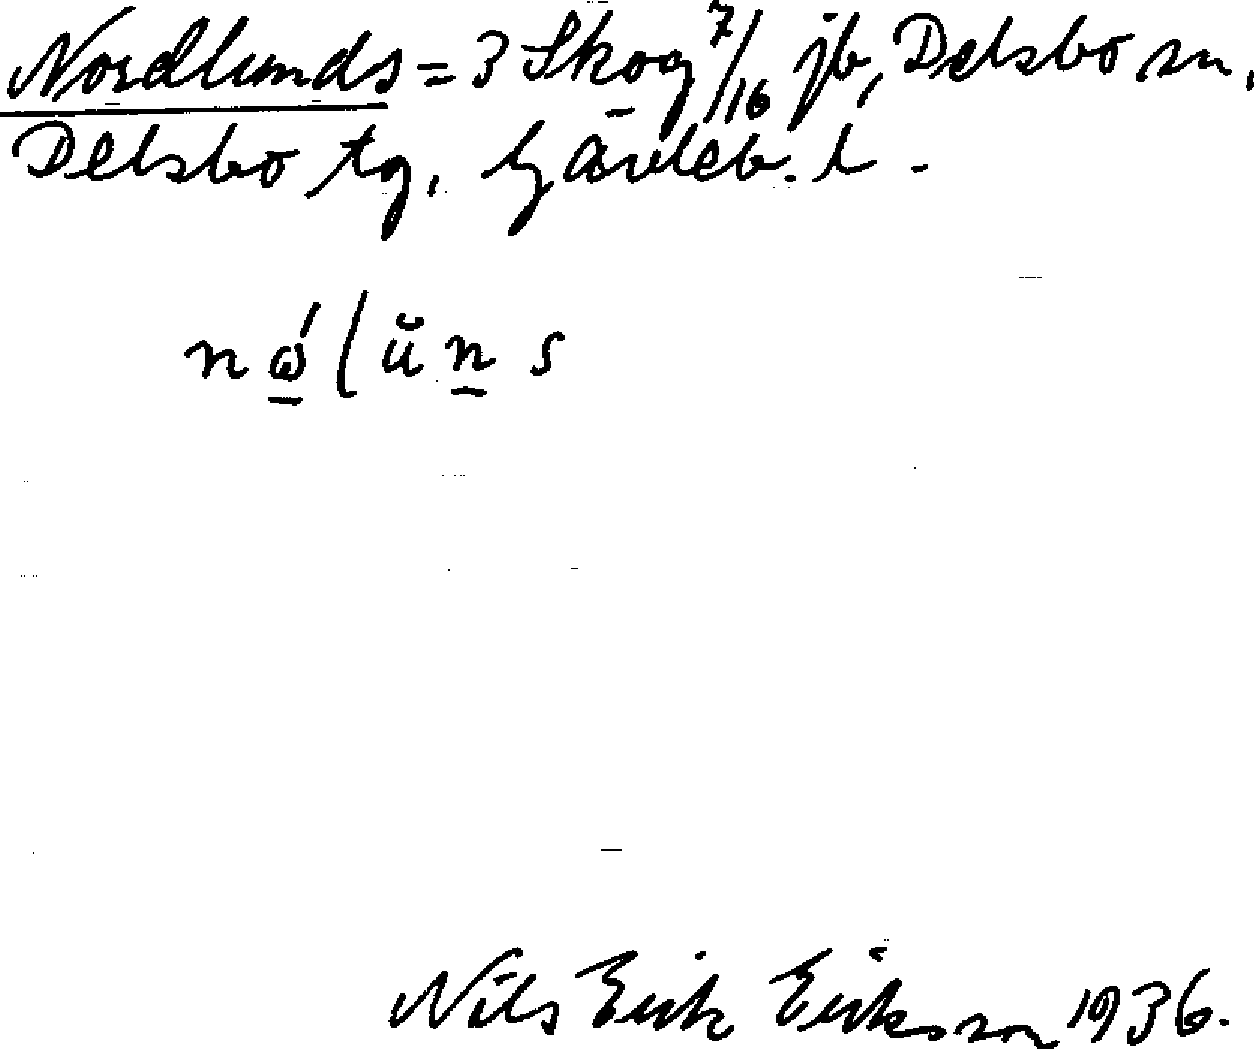 Nordlunds = 3 Skog 7/16 jb, Delsbo sn,
Delsbo tg, Gävleb. l.
Nils Erik Eriksson 1936.